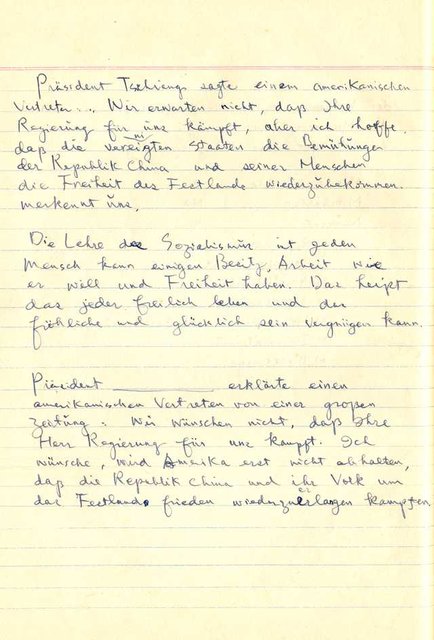 Präsident Tschiangs sagte einem amerikanischen
Vertreter... Wir erwarten nicht, daß Ihre
Regierung für uns kämpft, aber ich hoffe,
daß die vereinigten Staaten die Bemühungen
der Republik China und seiner Menschen
die Freiheit des Festlands wiederzubekommen.
merkennt uns.
Die Lehre des Sozialismus ist geden
Mensch kann einigen Besitz, Arbeit wie
er will und Freiheit haben. Das heißt
das jeder freilich leben und der
fröhliche und glücklich sein vergnügen kann.
Präsident __________ erklärte einen
amerikanischen Vertreten von einer großen
Zeitung. Wir wünschen nicht, daß Ihre
Herr Regierung für uns kampft. Ich
wünsche, wird Amerika erst nicht abhalten,
daß die Republik China und ihr Volk um
das Festland frieden kampfen